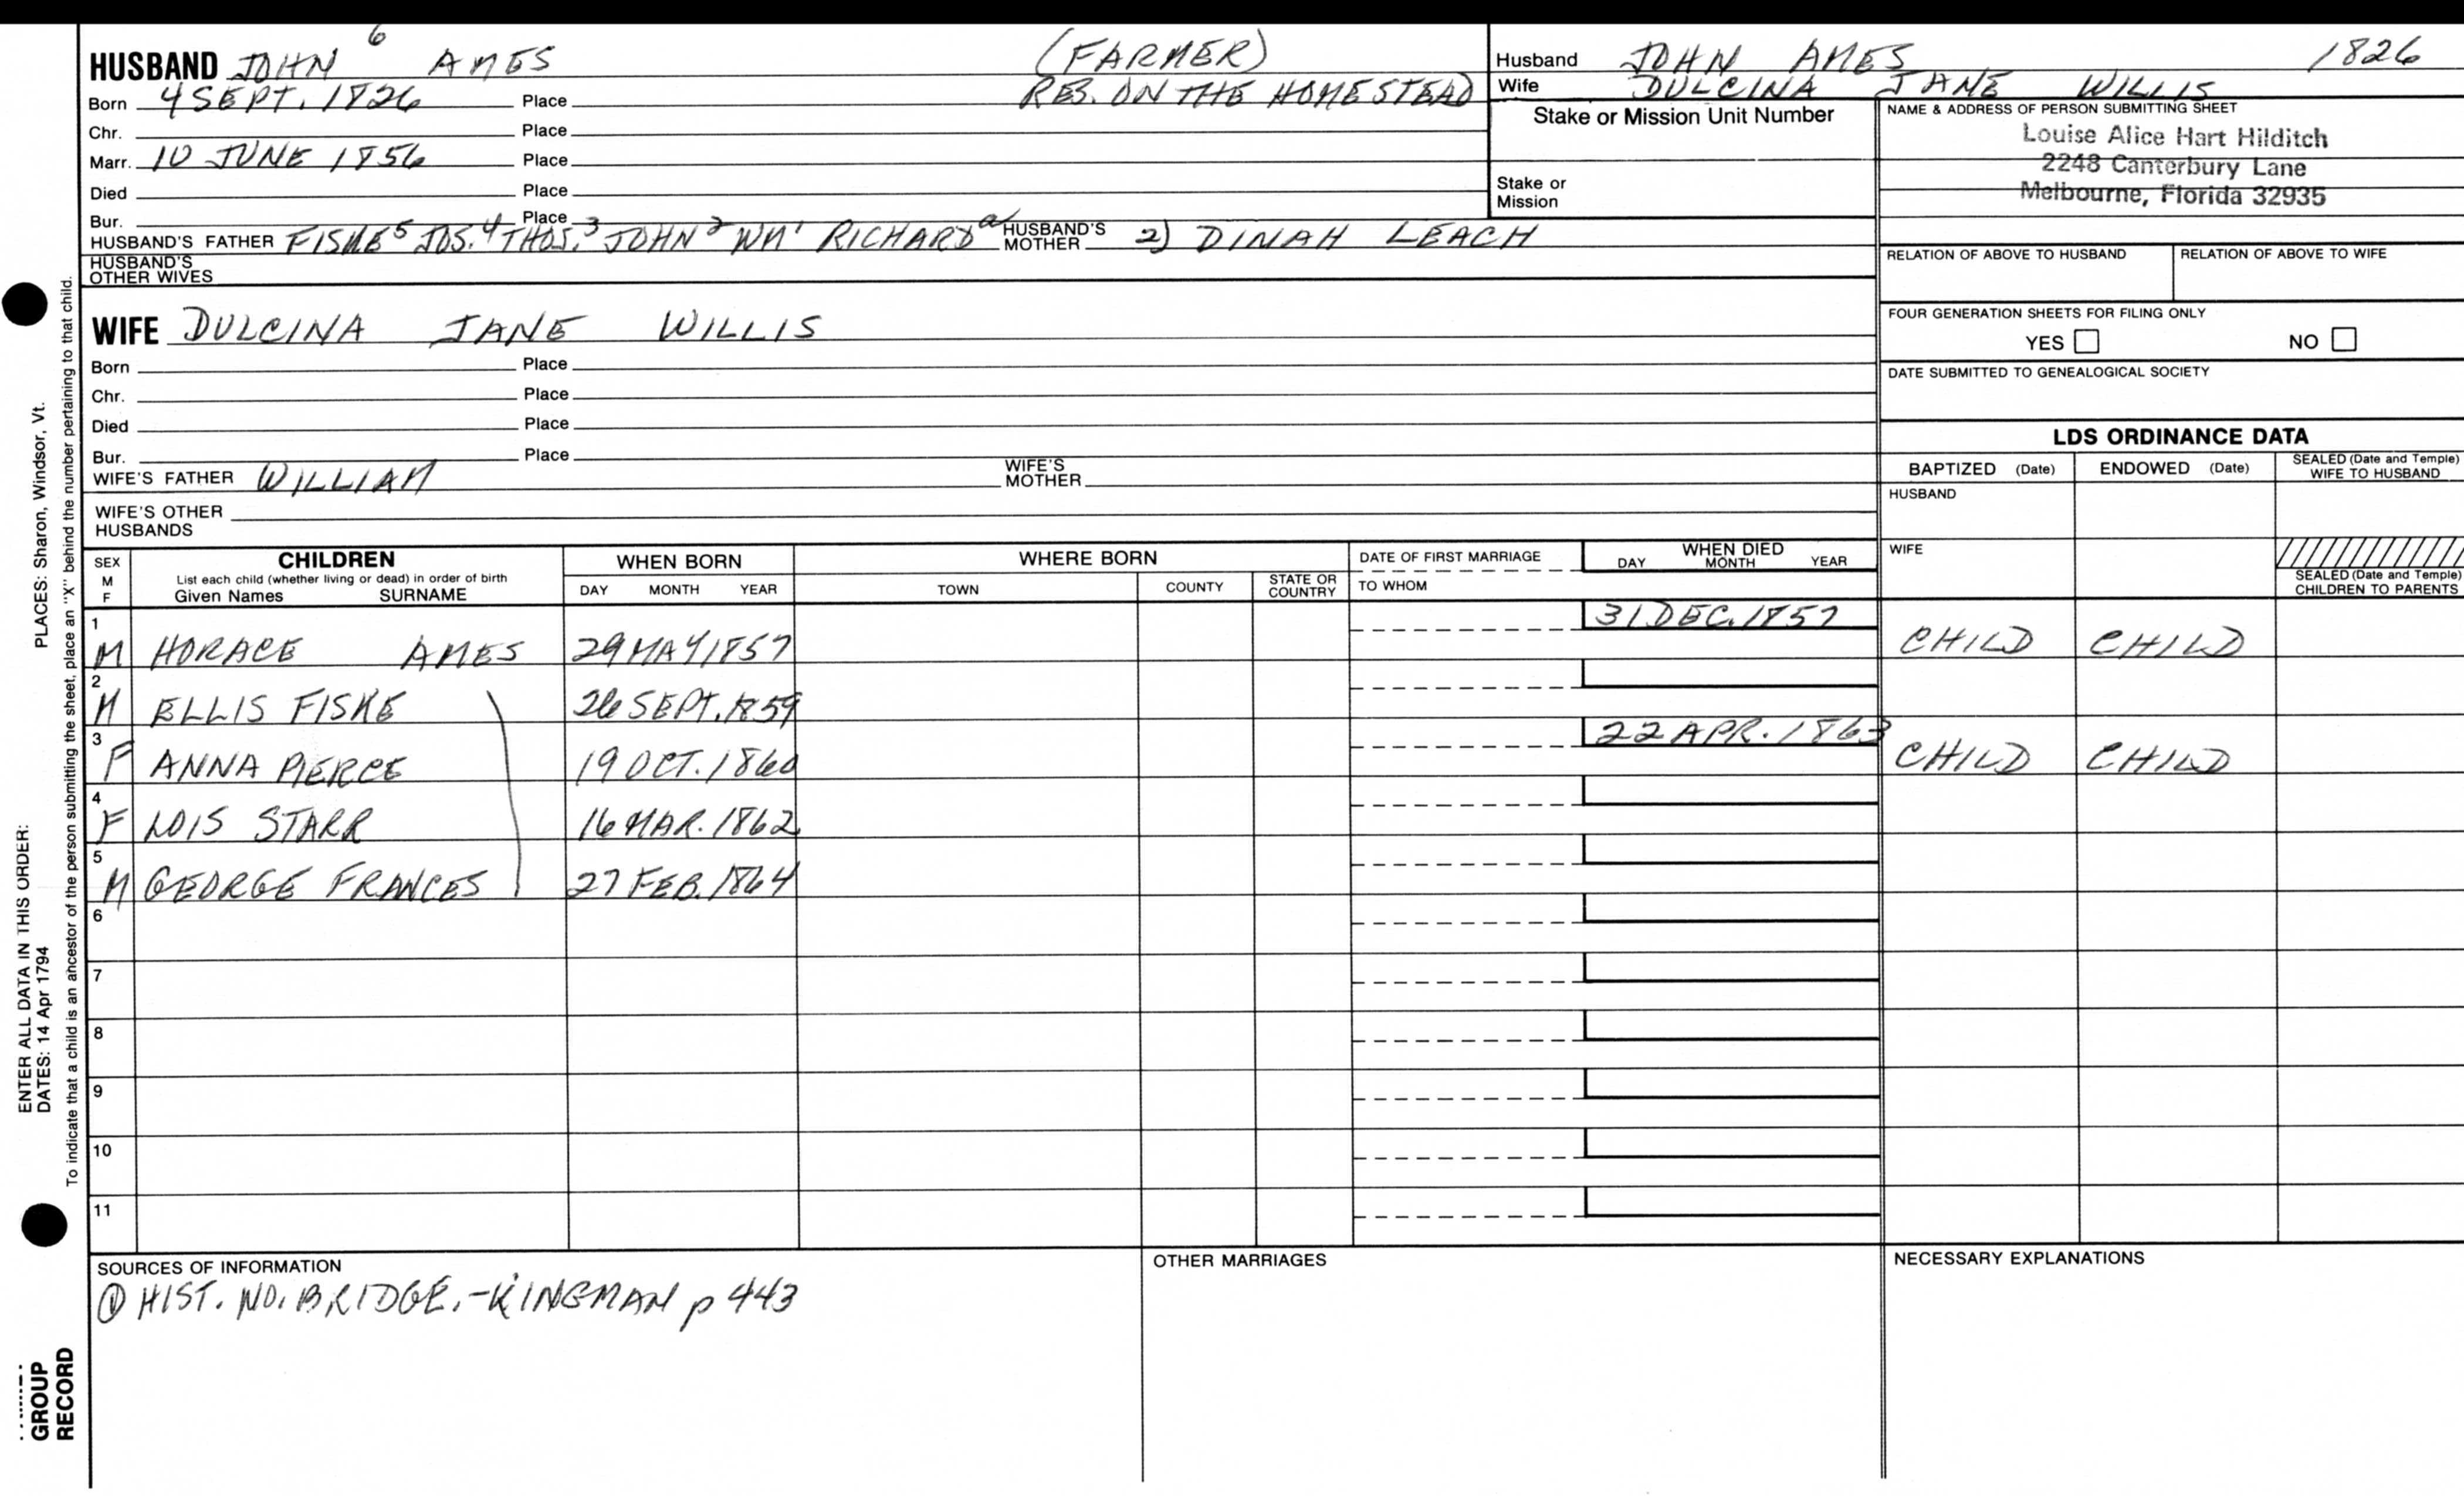 HUSBAND JOHN 6 AMES (FARMER)
Born 4 SEPT. 1826 Place RES. ON THE HOMESTEAD
Chr. Place
Marr. 10 JUNE 1856 Place
Died Place
Bur. Place
HUSBAND'S FATHER FISKE 5 JOS. 4 THOS. 3 JOHN 2 WM 1 RICHARD a HUSBAND'S MOTHER 2) DINAH LEACH
HUSBAND'S OTHER WIVES
WIFE DULCINA JANE WILLIS
Born Place
Chr. Place
Died Place
Bur. Place
WIFE'S FATHER WILLIAM WIFE'S MOTHER
WIFE'S OTHER HUSBANDS
Husband JOHN AMES 1826
Wife DULCINA JANE WILLIS
Stake or Mission Unit Number
Stake or Mission
NAME & ADDRESS OF PERSON SUBMITTING SHEET
Louise Alice Hart Hilditch
2248 Canterbury Lane
Melbourne, Florida 32935
RELATION OF ABOVE TO HUSBAND RELATION OF ABOVE TO WIFE
FOUR GENERATION SHEETS FOR FILING ONLY
YES NO
DATE SUBMITTED TO GENEALOGICAL SOCIETY
LDS ORDINANCE DATA
BAPTIZED (Date) ENDOWED (Date) SEALED (Date and Temple) WIFE TO HUSBAND
HUSBAND
WIFE
SEALED (Date and Temple) CHILDREN TO PARENTS
SEX M F CHILDREN List each child (whether living or dead) in order of birth Given Names SURNAME
WHEN BORN DAY MONTH YEAR
WHERE BORN TOWN COUNTY STATE OR COUNTRY
DATE OF FIRST MARRIAGE TO WHOM
WHEN DIED DAY MONTH YEAR
1 M HORACE AMES 29 MAY 1857 31 DEC. 1857 CHILD CHILD
2 M ELLIS FISKE 26 SEPT. 1859
3 F ANNA PIERCE 19 OCT. 1860 22 APR. 1863 CHILD CHILD
4 F LOIS STARR 16 MAR. 1862
5 M GEORGE FRANCES 27 FEB. 1864
6
7
8
9
10
11
SOURCES OF INFORMATION
① HIST. NO. BRIDGE. - KINGMAN p 443
OTHER MARRIAGES
NECESSARY EXPLANATIONS
ENTER ALL DATA IN THIS ORDER:
DATES: 14 Apr 1794 PLACES: Sharon, Windsor, Vt.
To indicate that a child is an ancestor of the person submitting the sheet, place an "X" behind the number pertaining to that child.
GROUP
RECORD